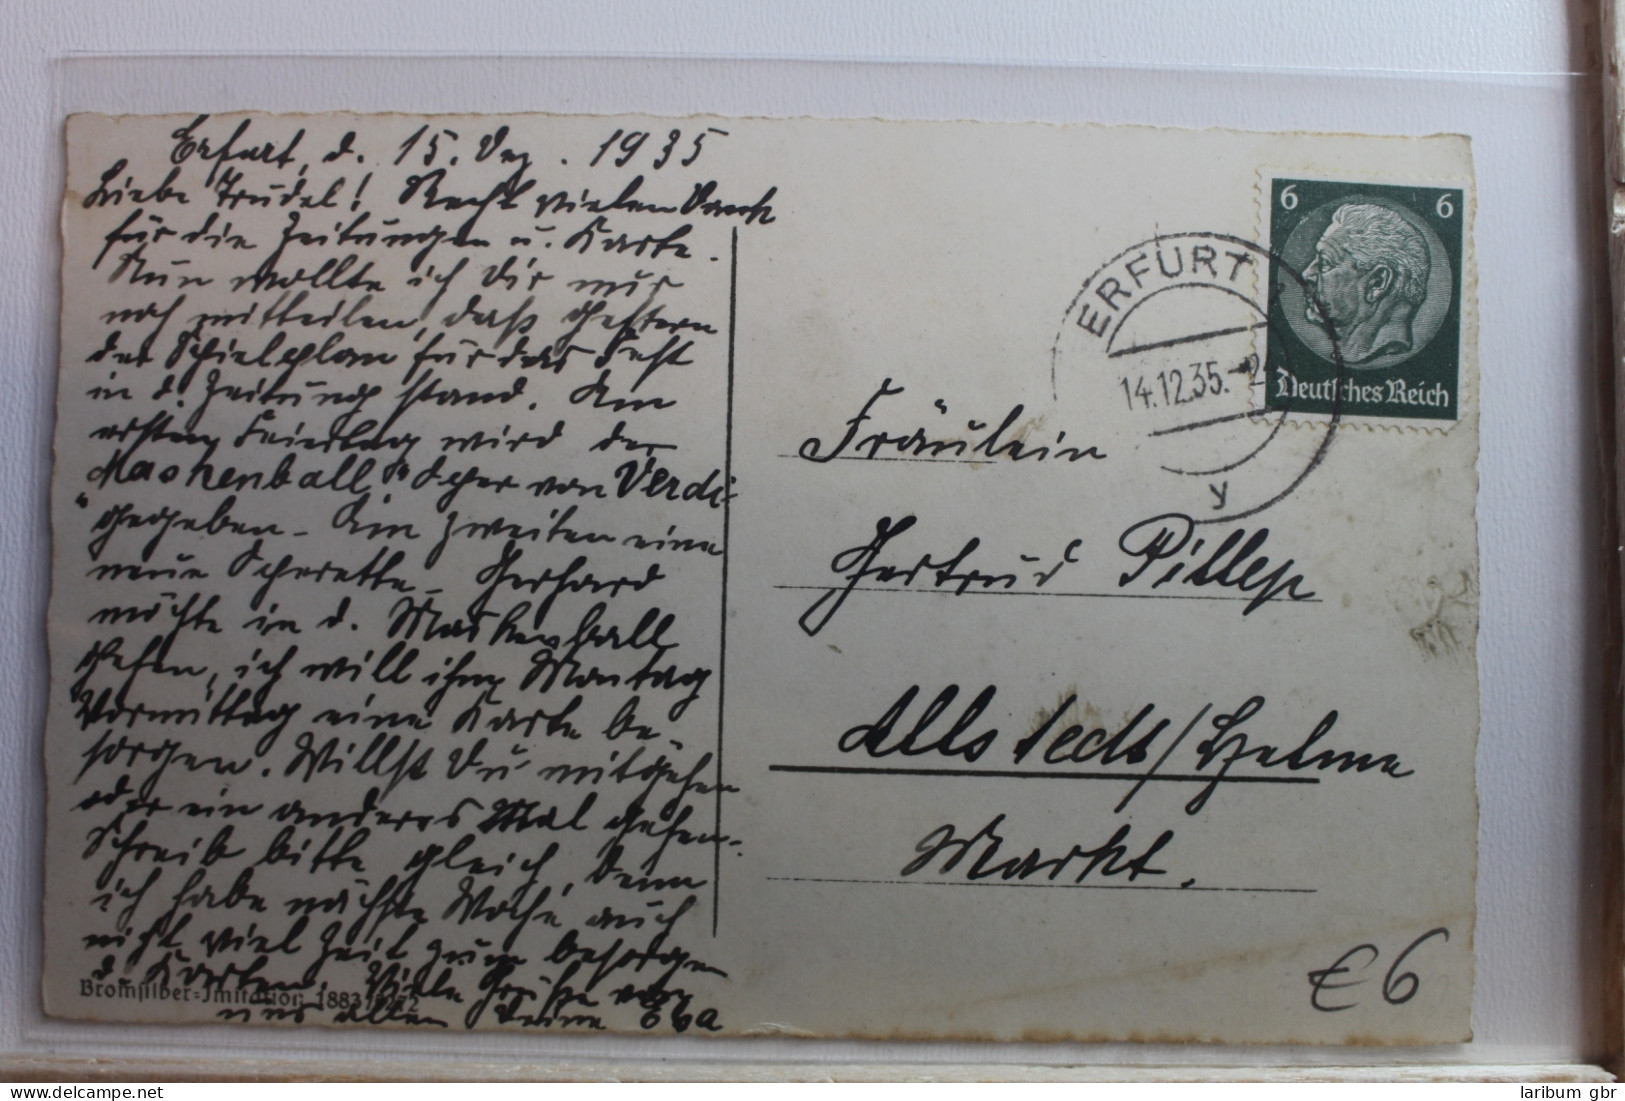 Erfurt, d. 15. Dez. 1935
Liebe Trudel! Recht vielen Dank
für die Zeitungen u. Karte.
Nun wollte ich Dir nur
noch mitteilen, daß gestern
der Spielplan für das Fest
in d. Zeitung stand. Am
ersten Feiertag wird der
Maskenball" Oper von Verdi
"gegeben. Am zweiten eine
neue Operette. Gerhard
möchte in d. Maskenball
gehen, ich will ihm Montag
Vormittag eine Karte be-
sorgen. Willst Du mitgehen
oder ein anderes Mal gehen.
Schreib bitte gleich, denn
ich habe nächste Woche auch
nicht viel Zeit zum besorgen
d. Karten. Viele Grüße von
uns allen Deine Eva
Bromsilber-Imitation 1883
6 6
Deutsches Reich
ERFURT
14.12.35.
y
Fräulein
Gertrud Pillep
Allstedt/Helme
Markt.
€6
laribum gbr
delcampe.net